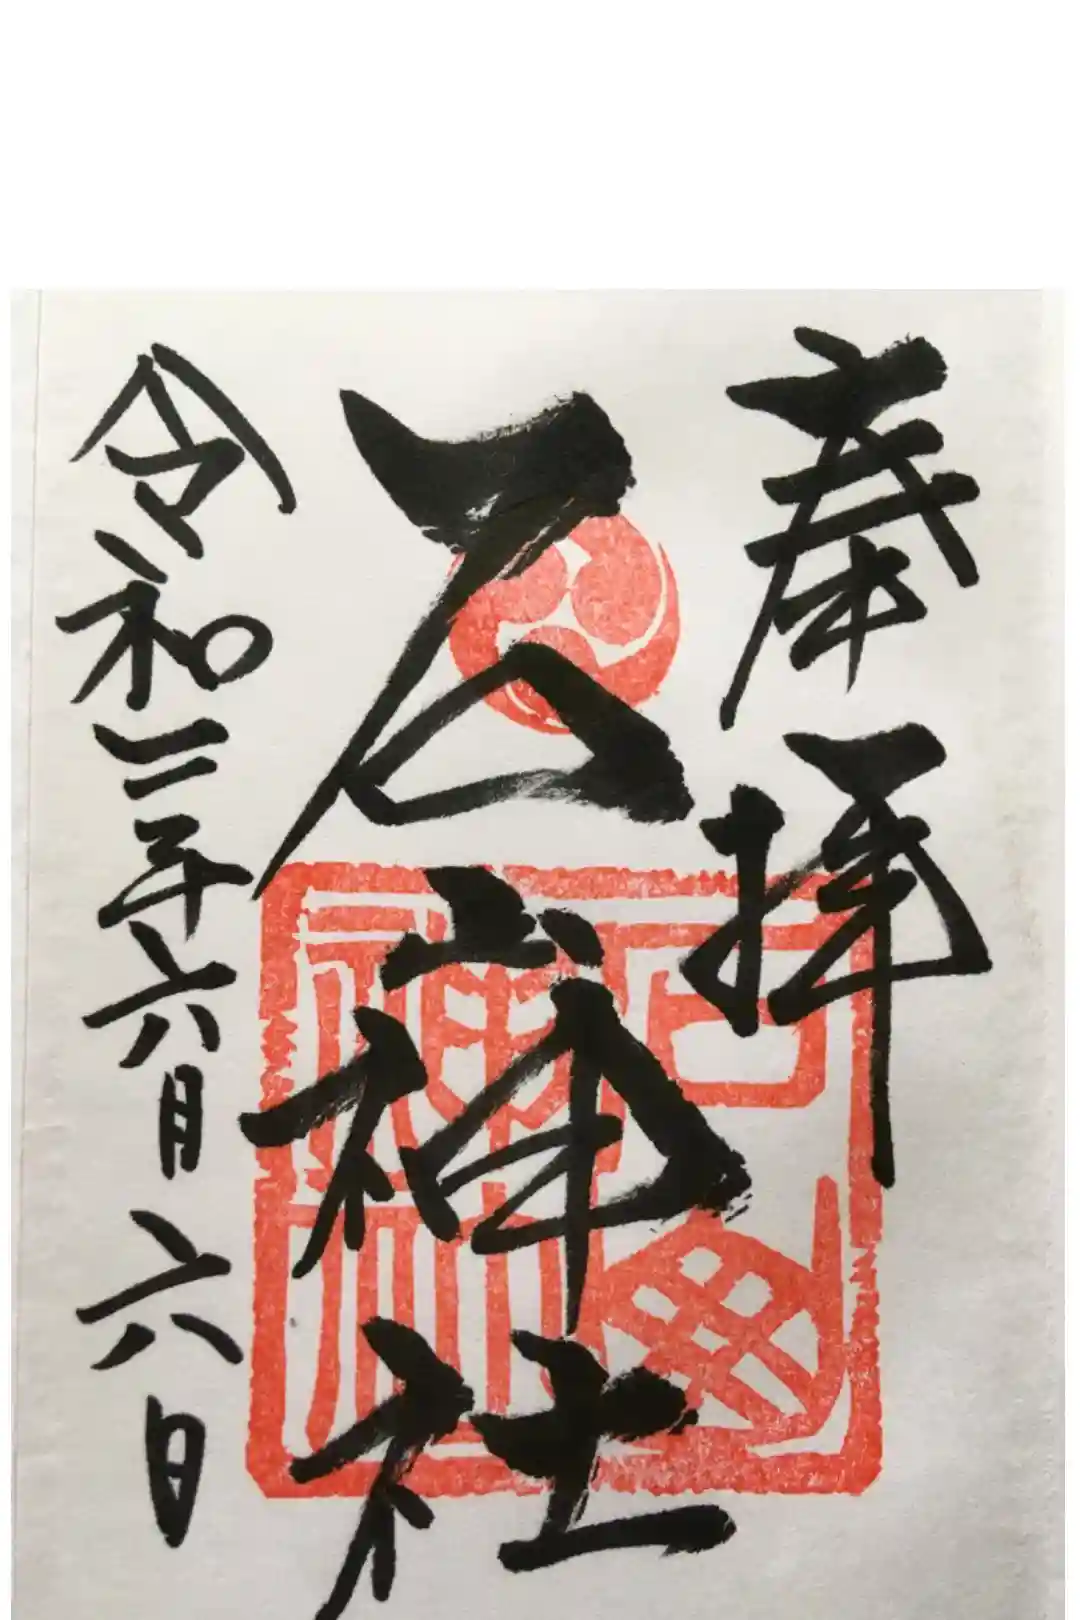 奉拝
石山神社
令和三年六月六日